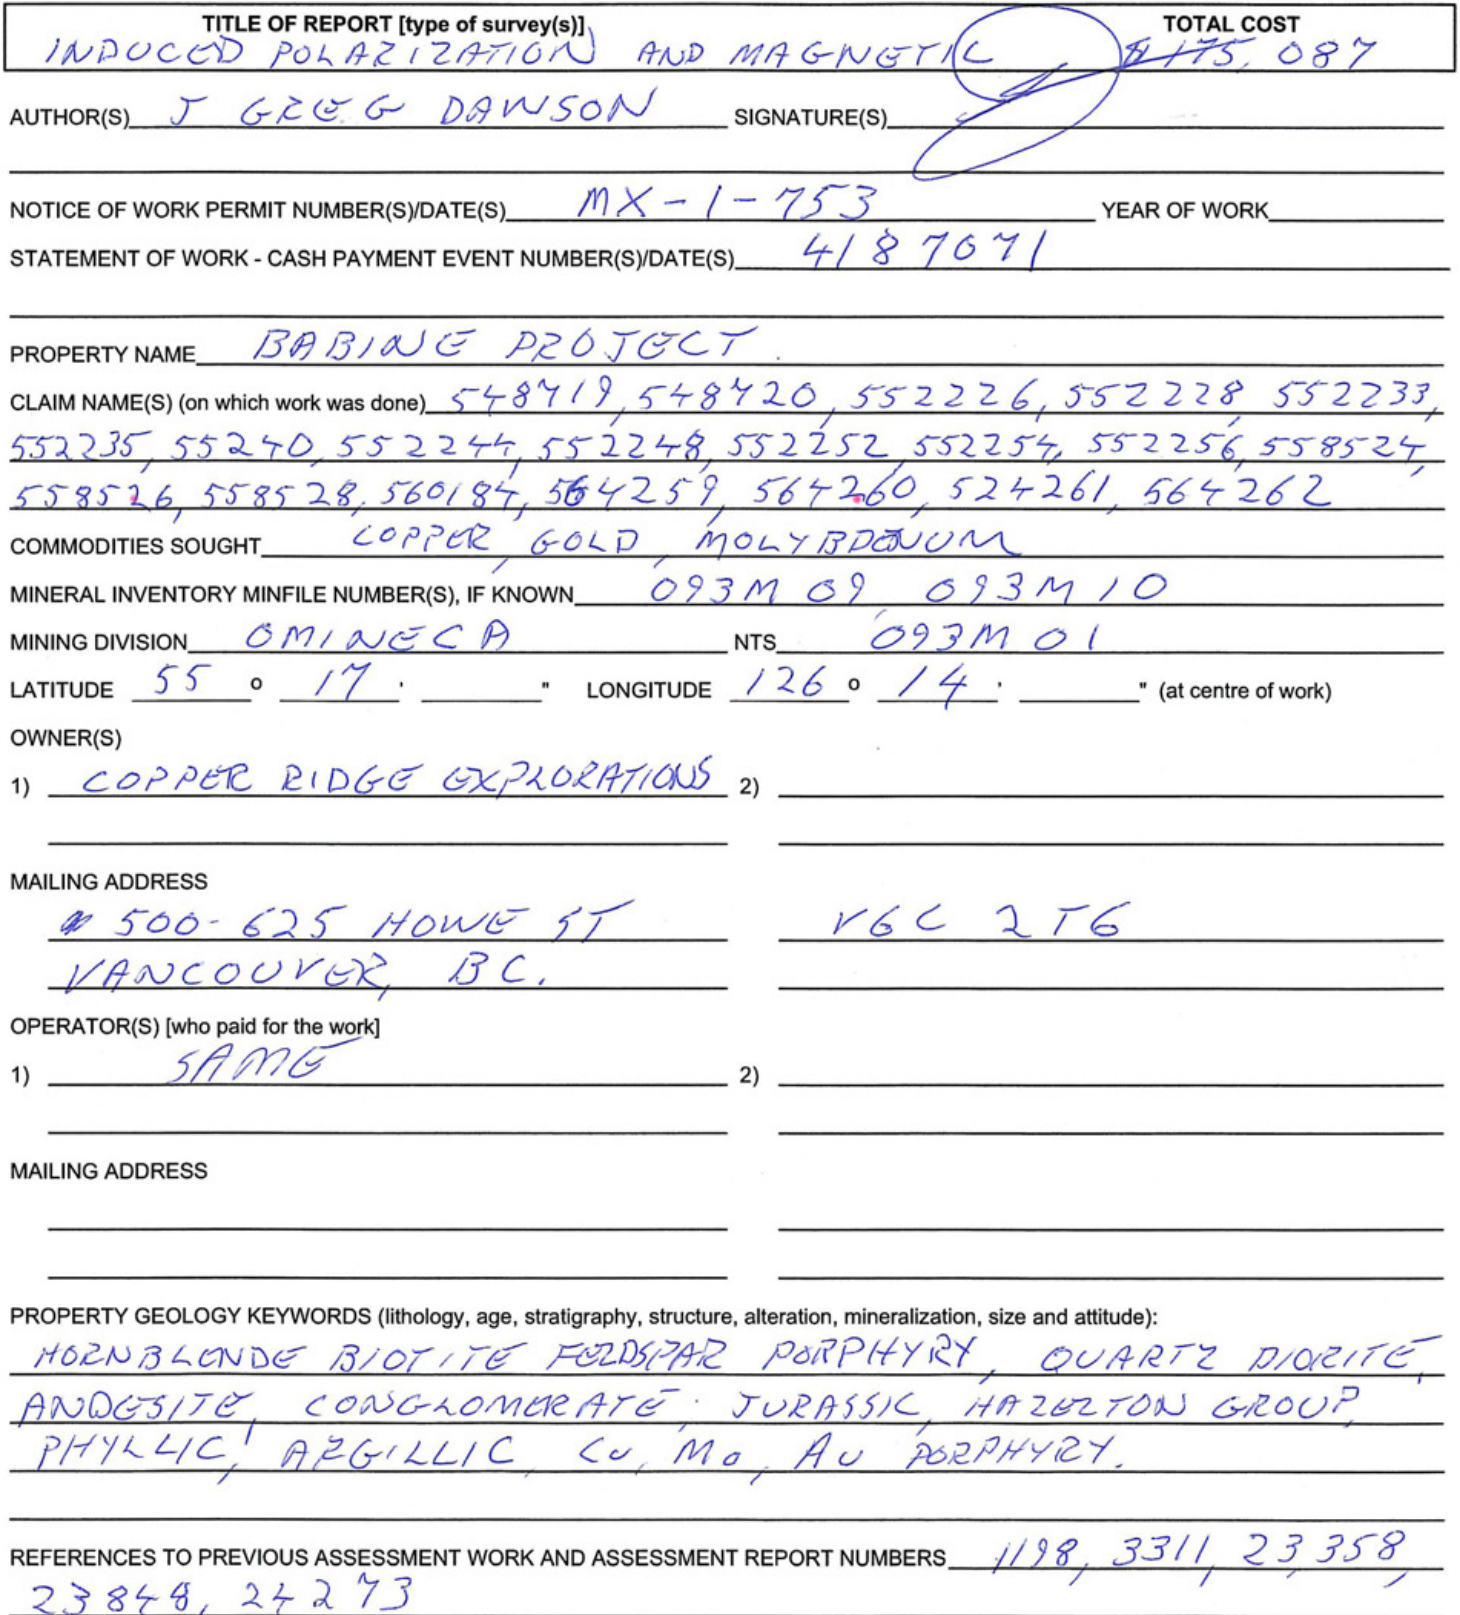 TITLE OF REPORT [type of survey(s)] TOTAL COST
INDUCED POLARIZATION AND MAGNETIC $175,087
AUTHOR(S) J GREG DAWSON SIGNATURE(S)
NOTICE OF WORK PERMIT NUMBER(S)/DATE(S) MX-1-753 YEAR OF WORK
STATEMENT OF WORK - CASH PAYMENT EVENT NUMBER(S)/DATE(S) 4187071
PROPERTY NAME BABINE PROJECT
CLAIM NAME(S) (on which work was done) 548719, 548720, 552226, 552228, 552233,
552235, 55240, 552244, 552248, 552252, 552254, 552256, 558524,
558526, 558528, 560184, 564259, 564260, 524261, 564262
COMMODITIES SOUGHT COPPER, GOLD, MOLYBDENUM
MINERAL INVENTORY MINFILE NUMBER(S), IF KNOWN 093M 09, 093M 10
MINING DIVISION OMINECA NTS 093M 01
LATITUDE 55 ° 17 ' " LONGITUDE 126 ° 14 ' " (at centre of work)
OWNER(S)
1) COPPER RIDGE EXPLORATIONS 2)
MAILING ADDRESS
500-625 HOWE ST V6C 2T6
VANCOUVER, BC.
OPERATOR(S) [who paid for the work]
1) SAME 2)
MAILING ADDRESS
PROPERTY GEOLOGY KEYWORDS (lithology, age, stratigraphy, structure, alteration, mineralization, size and attitude):
HORNBLENDE BIOTITE FELDSPAR PORPHYRY, QUARTZ DIORITE,
ANDESITE, CONGLOMERATE, JURASSIC, HAZELTON GROUP,
PHYLLIC, ARGILLIC, Cu, Mo, Au PORPHYRY.
REFERENCES TO PREVIOUS ASSESSMENT WORK AND ASSESSMENT REPORT NUMBERS 1198, 3311, 23,358,
23848, 24273